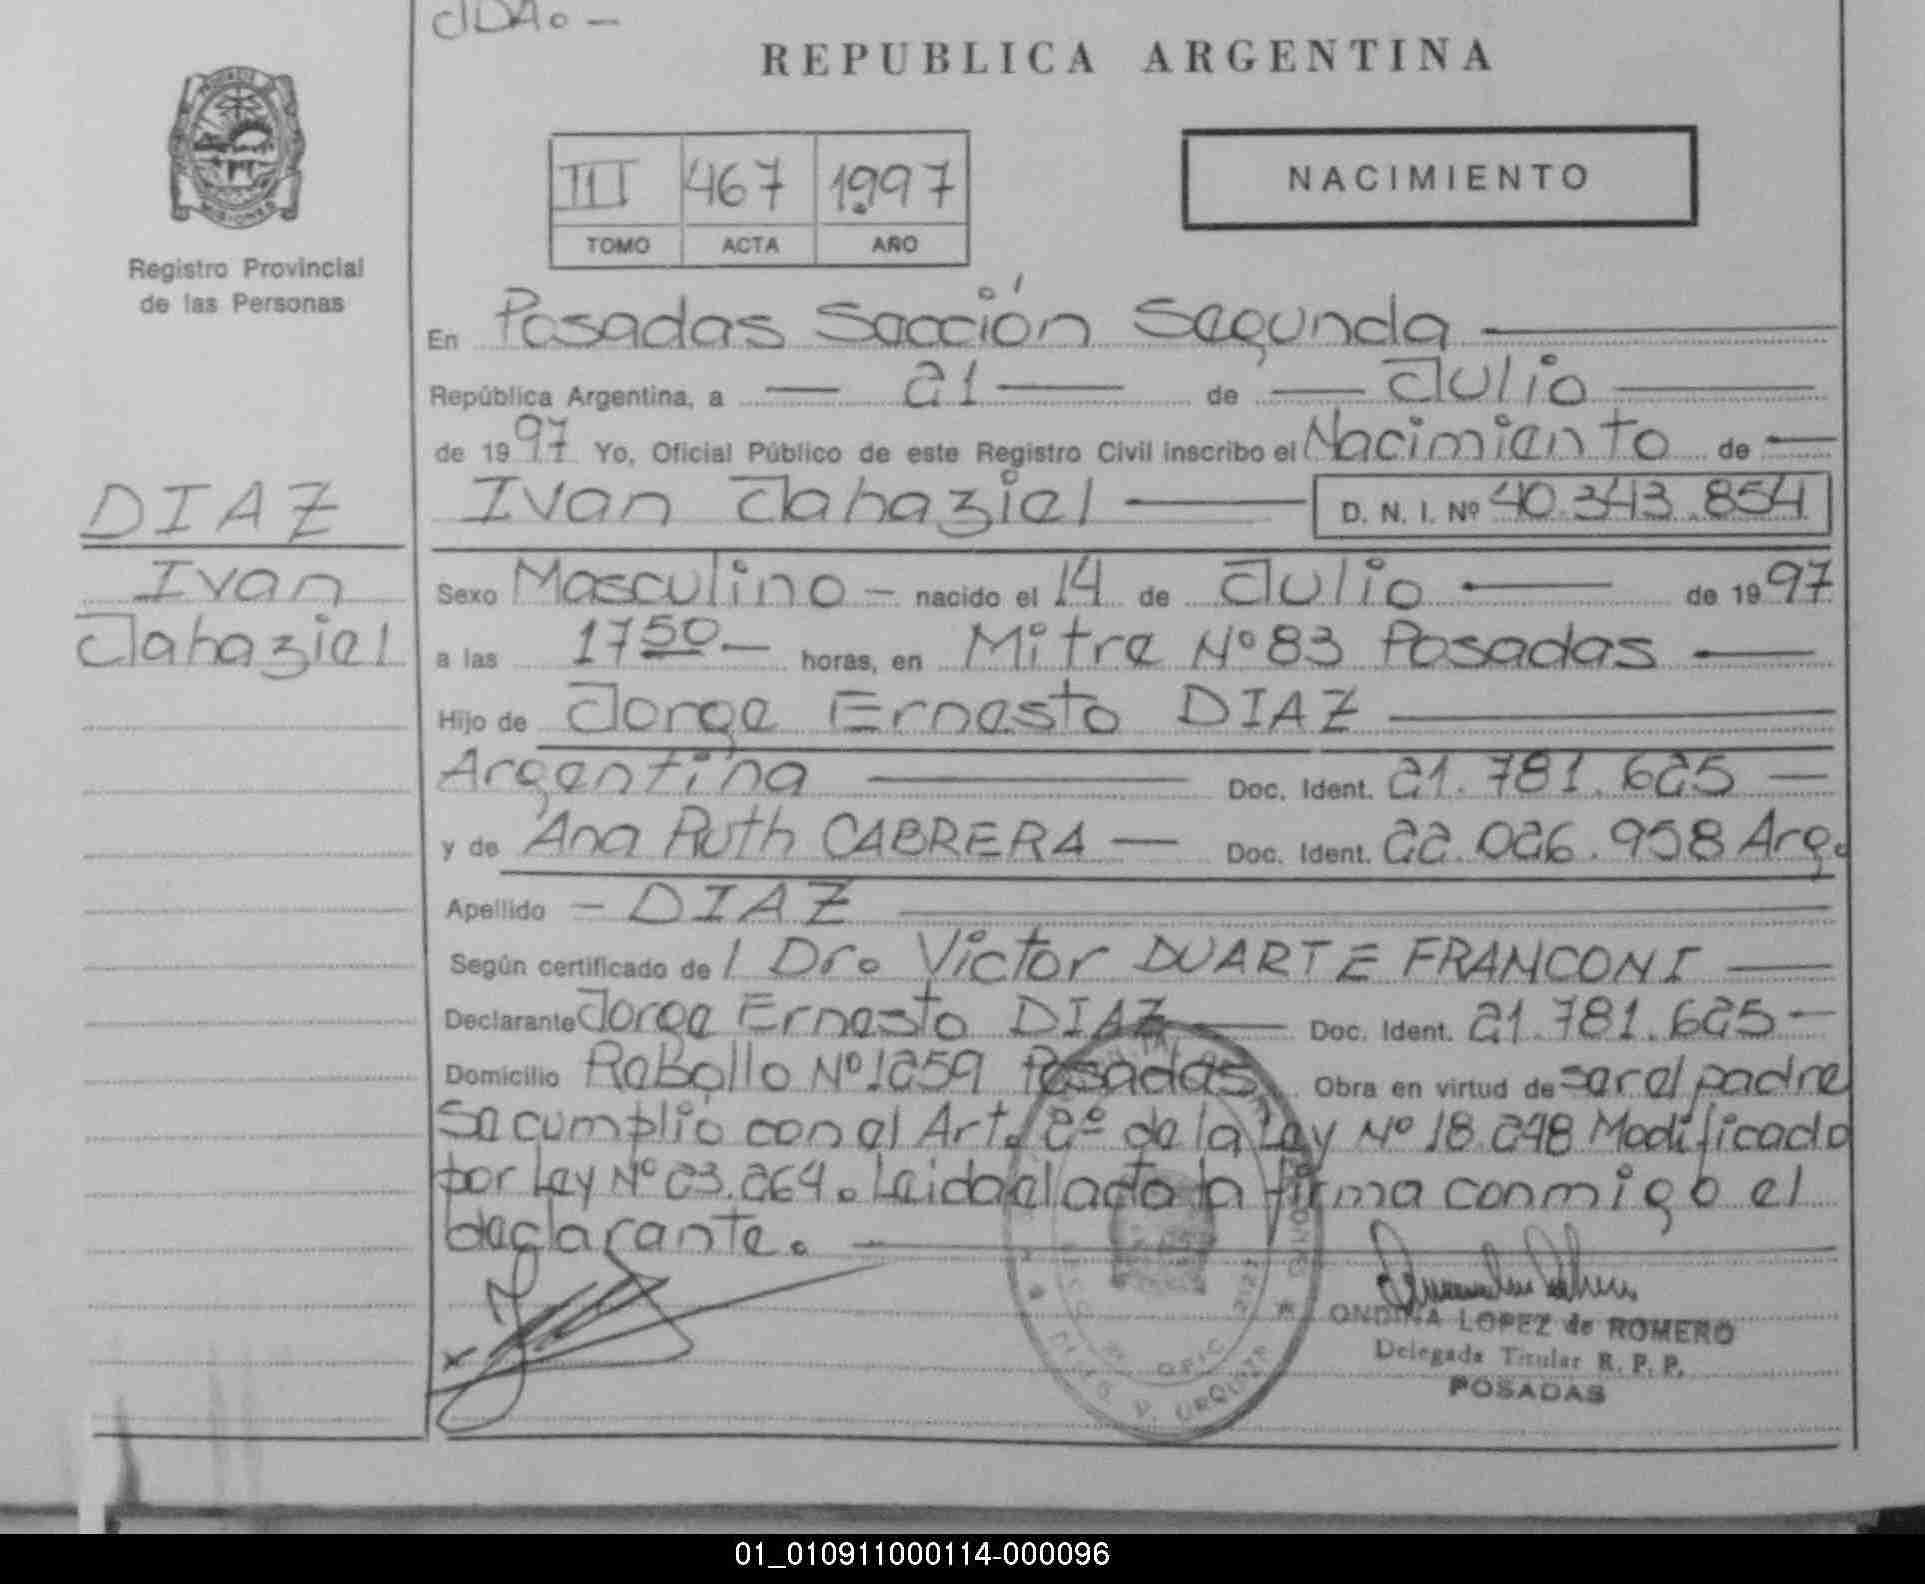 JDA. —
REPUBLICA ARGENTINA
MISIONES
Registro Provincial
de las Personas
III 467 1997
TOMO ACTA AÑO
NACIMIENTO
En Posadas Sección Segunda
República Argentina, a — 21 — de — Julio
de 1997 Yo, Oficial Público de este Registro Civil inscribo el Nacimiento de —
Ivan Jahaziel — D. N. I. Nº 40.343.854
DIAZ
Ivan
Jahaziel
Sexo Masculino — nacido el 14 de Julio — de 1997
a las 17 50 — horas, en Mitre Nº 83 Posadas —
Hijo de Jorge Ernesto DIAZ —
Argentina — Doc. Ident. 21.781.625 —
y de Ana Ruth CABRERA — Doc. Ident. 22.026.958 Arg.
Apellido — DIAZ —
Según certificado de l Dr. Victor DUARTE FRANCONI —
Declarante Jorge Ernesto DIAZ — Doc. Ident. 21.781.625 —
Domicilio Rabollo Nº 1259 Posadas Obra en virtud de ser el padre
Se cumplió con el Art. 2º de la Ley Nº 18.248 Modificado
por Ley Nº 23.264. Leida el acta la firma conmigo el
declarante. —
ONDINA LOPEZ de ROMERO
Delegada Titular R. P. P.
POSADAS
OFIC 2127
URQUIZA
01_010911000114-000096